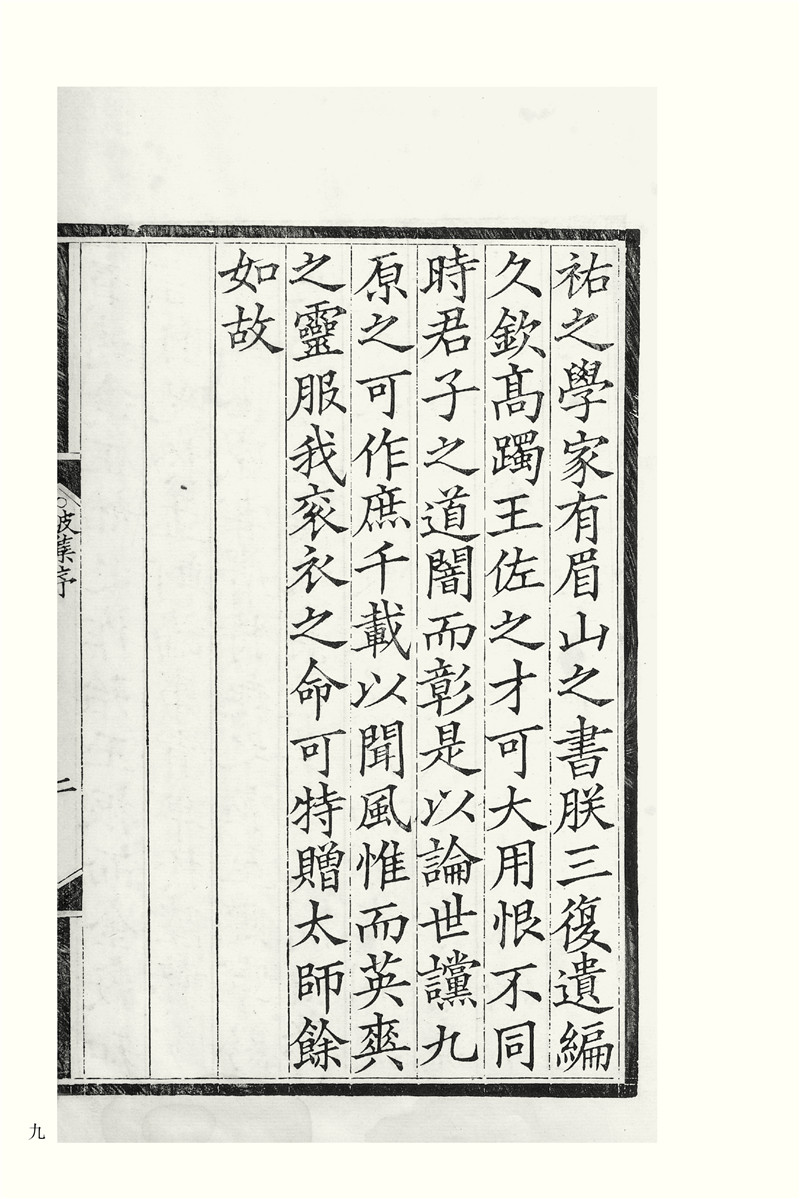 祐之學家有眉山之書朕三復遺編
久欽高躅王佐之才可大用恨不同
時君子之道闇而彰是以論世讜九
原之可作庶千載以聞風惟而英爽
之靈服我衮衣之命可特贈太師餘
如故
坡集序
二
九